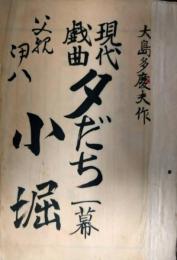 大島多慶夫作
現代
戯曲
夕だち 一幕
父親
沼八
小堀